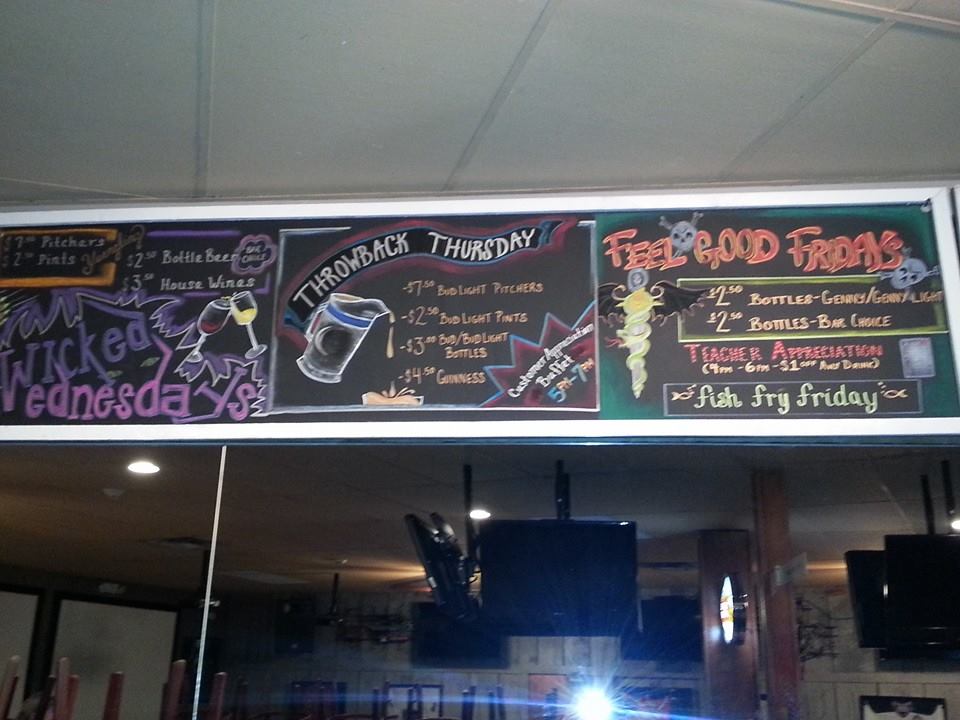 Pitchers
Pints
Yuengling
$2.50 Bottle Beer
BAR CHOICE
$3.50 House Wines
Wicked
Wednesdays
THROWBACK THURSDAY
-$7.50 BUD LIGHT PITCHERS
-$2.50 BUD LIGHT PINTS
-$3.00 BUD/BUD LIGHT
BOTTLES
-$4.50 GUINNESS
Customer Appreciation
Buffet
5PM-7PM
FEEL GOOD FRIDAYS
$2.50 BOTTLES-GENNY/GENNY LIGHT
$2.50 BOTTLES-BAR CHOICE
TEACHER APPRECIATION
(4PM-6PM-$1 OFF ANY DRINK)
fish fry friday